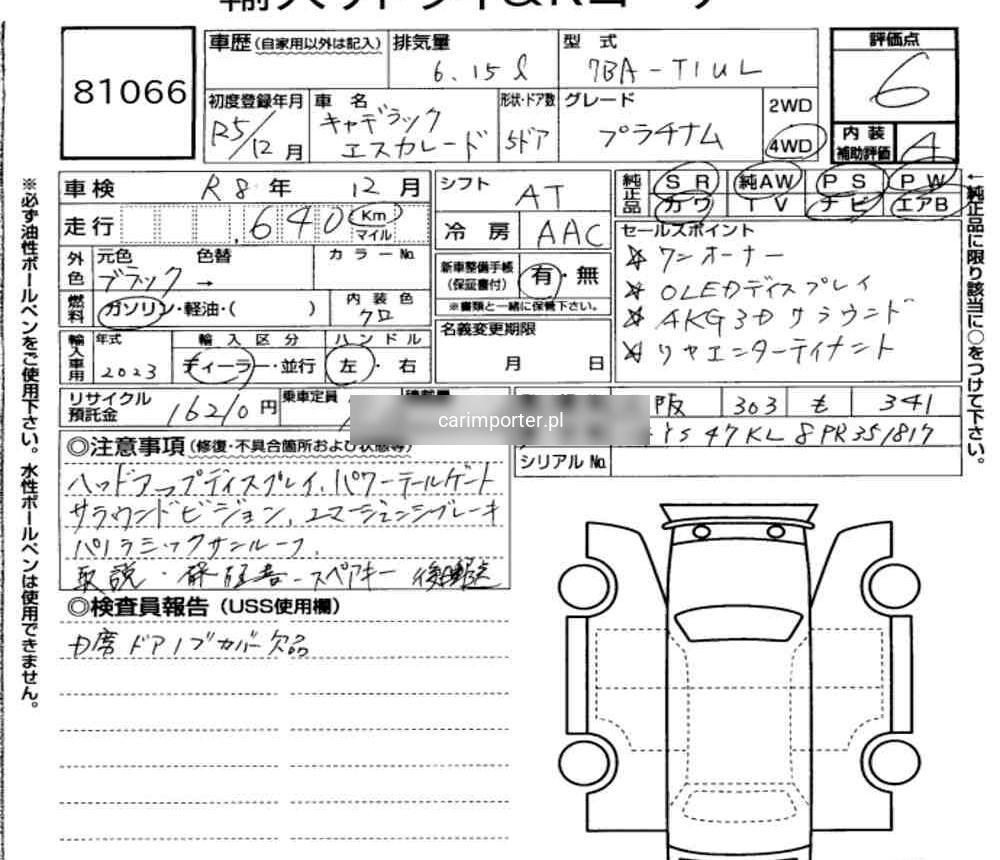 81066
車歴 (自家用以外は記入) 排気量 6.15ℓ 型式 7BA-T1UL
初度登録年月 R5/12月 車名 キャデラック エスカレード 形状・ドア数 5ドア グレード プラチナム 2WD 4WD
評価点 6
内装補助評価 A
車検 R8年 12月
走行 640 Km マイル
外色 元色 ブラック 色替 → カラーNo.
燃料 ガソリン・軽油・( ) 内装色 クロ
輸入車用 年式 2023 輸入区分 ディーラー・並行 ハンドル 左・右
リサイクル預託金 16210円 乗車定員
シフト AT
冷房 AAC
新車整備手帳 (保証書付) 有・無
※書類と一緒に保管下さい。
名義変更期限 月 日
純正品 SR 純AW PS PW
カワ TV ナビ エアB
セールスポイント
☆ ワンオーナー
☆ OLEDディスプレイ
☆ AKG3Dサラウンド
☆ リヤエンターテイナント
阪 303 も 341
YS47KL8PR351817
シリアルNo.
carimporter.pl
◎注意事項 (修復・不具合箇所および状態等)
ヘッドアップディスプレイ、パワーテールゲート
サラウンドビジョン、エマージェンシブレーキ
パノラミックサンルーフ、
取説・保証書・スペアキー 後日郵送
◎検査員報告 (USS使用欄)
D席ドアノブカバー欠品
※必ず油性ボールペンをご使用下さい。水性ボールペンは使用できません。
←純正品に限り該当に○をつけて下さい。